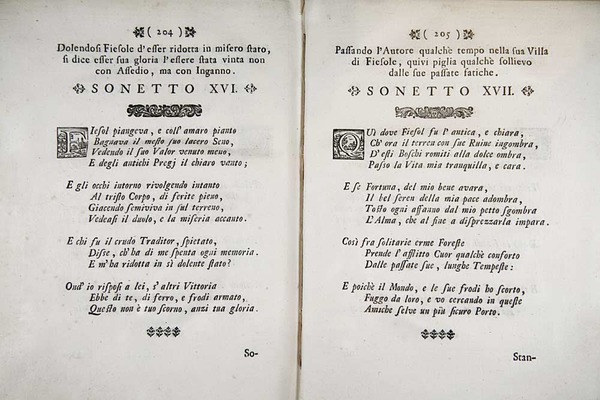 ( 204 )
Dolendosi Fiesole d'esser ridotta in misero stato,
si dice esser sua gloria l'essere stata vinta non
con Assedio, ma con Inganno.
SONETTO XVI.
Fiesol piangeva, e coll' amaro pianto
Bagnava il mesto suo lacero Seno,
Vedendo il suo Valor venuto meno,
E degli antichi Pregj il chiaro vanto;
E gli occhi intorno rivolgendo intanto
Al tristo Corpo, di ferite pieno,
Giacendo semiviva in sul terreno,
Vedeasi il duolo, e la miseria accanto.
E chi fu il crudo Traditor, spietato,
Disse, ch'ha di me spenta ogni memoria.
E m'ha ridotta in sì dolente stato?
Ond' io risposi a lei, s'altri Vittoria
Ebbe di te, di ferro, e frodi armato,
Questo non è tuo scorno, anzi tua gloria.
So-
( 205 )
Passando l'Autore qualchè tempo nella sua Villa
di Fiesole, quivi piglia qualchè sollievo
dalle sue passate fatiche.
SONETTO XVII.
QUì dove Fiesol fu l' antica, e chiara,
Ch' ora il terren con sue Ruine ingombra,
D' esti Boschi romiti alla dolce ombra,
Passo la Vita mia tranquilla, e cara.
E se Fortuna, del mio bene avara,
Il bel seren della mia pace adombra,
Tosto ogni affanno dal mio petto sgombra
L'Alma, che al fine a disprezzarla impara.
Così fra solitarie erme Foreste
Prende l'afflitto Cuor qualchè conforto
Dalle passate sue, lunghe Tempeste:
E poichè il Mondo, e le sue frodi ho scorto,
Fuggo da loro, e vo cercando in queste
Amiche selve un più sicuro Porto.
Stan-